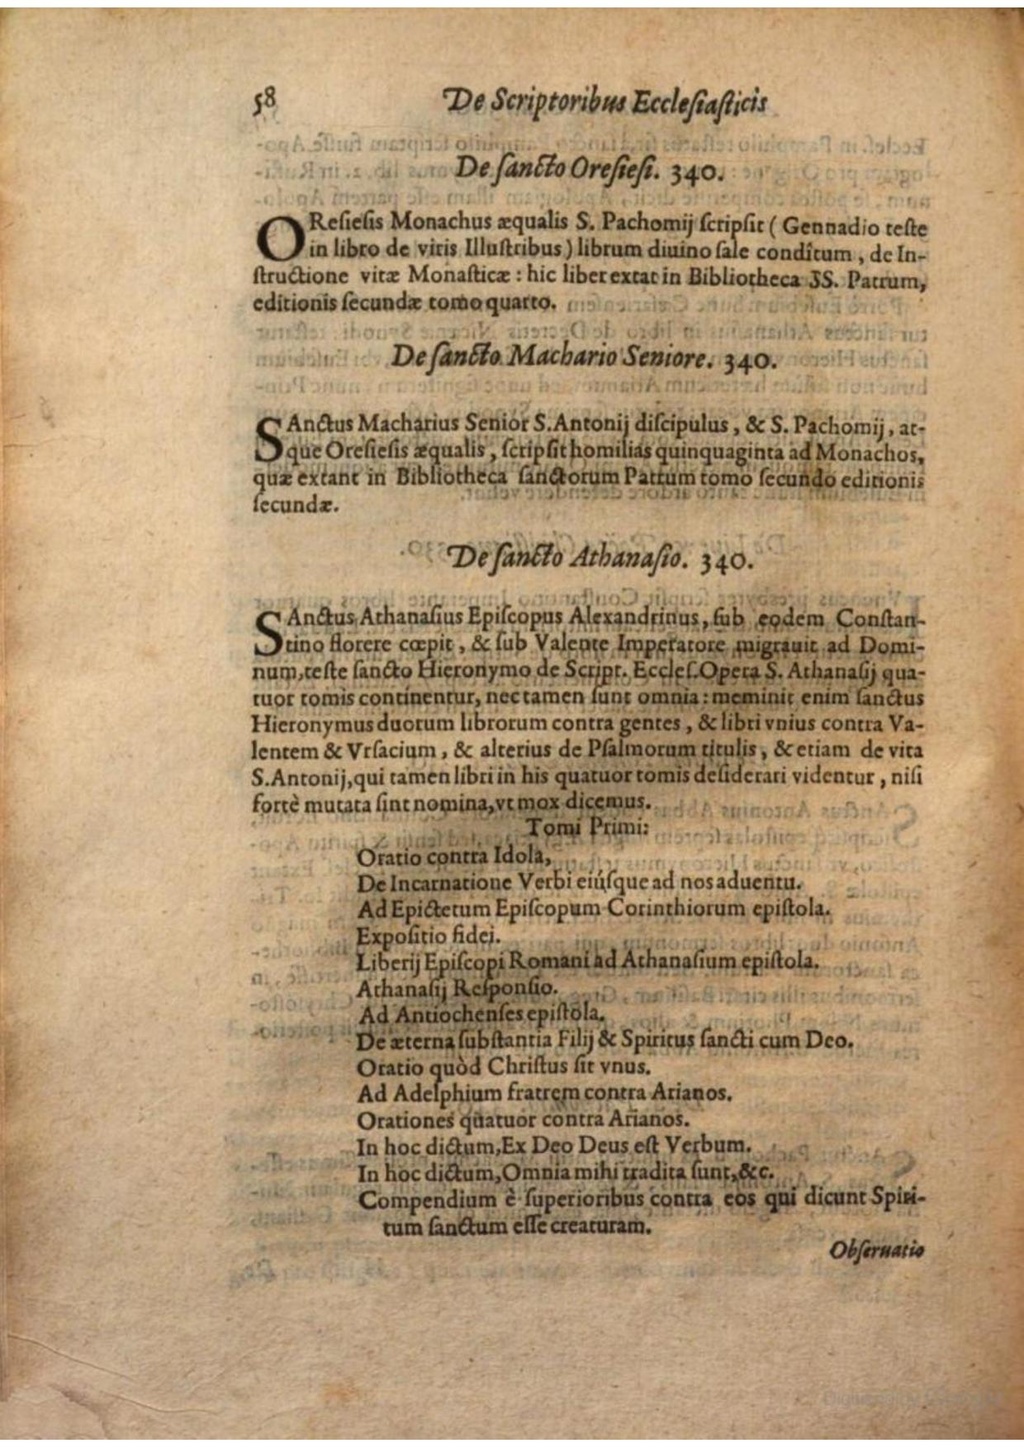 58 De Scriptoribus Ecclesiasticis
De sancto Oresiesi. 340.
OResiesis Monachus æqualis S. Pachomij scripsit ( Gennadio teste
in libro de viris Illustribus ) librum diuino sale conditum , de In-
structione vitæ Monasticæ : hic liber extat in Bibliotheca SS. Patrum,
editionis secundæ tomo quarto.
De sancto Machario Seniore. 340.
SAnctus Macharius Senior S. Antonij discipulus , & S. Pachomij , at-
que Oresiesis æqualis , scripsit homilias quinquaginta ad Monachos,
quæ extant in Bibliotheca sanctorum Patrum tomo secundo editionis
secundæ.
De sancto Athanasio. 340.
SAnctus Athanasius Episcopus Alexandrinus, sub eodem Constan-
tino florere cœpit , & sub Valente Imperatore migrauit ad Domi-
num, teste sancto Hieronymo de Script. Eccles. Opera S. Athanasij qua-
tuor tomis continentur, nec tamen sunt omnia : meminit enim sanctus
Hieronymus duorum librorum contra gentes , & libri vnius contra Va-
lentem & Vrsacium , & alterius de Psalmorum titulis , & etiam de vita
S. Antonij, qui tamen libri in his quatuor tomis desiderari videntur , nisi
fortè mutata sint nomina, vt mox dicemus.
Tomi Primi:
Oratio contra Idola,
De Incarnatione Verbi eiúsque ad nos aduentu.
Ad Epictetum Episcopum Corinthiorum epistola.
Expositio fidei.
Liberij Episcopi Romani ad Athanasium epistola.
Athanasij Responsio.
Ad Antiochenses epistola.
De æterna substantia Filij & Spiritus sancti cum Deo.
Oratio quòd Christus sit vnus.
Ad Adelphium fratrem contra Arianos.
Orationes quatuor contra Arianos.
In hoc dictum, Ex Deo Deus est Verbum.
In hoc dictum, Omnia mihi tradita sunt, &c.
Compendium è superioribus contra eos qui dicunt Spiri-
tum sanctum esse creaturam.
Obseruatio